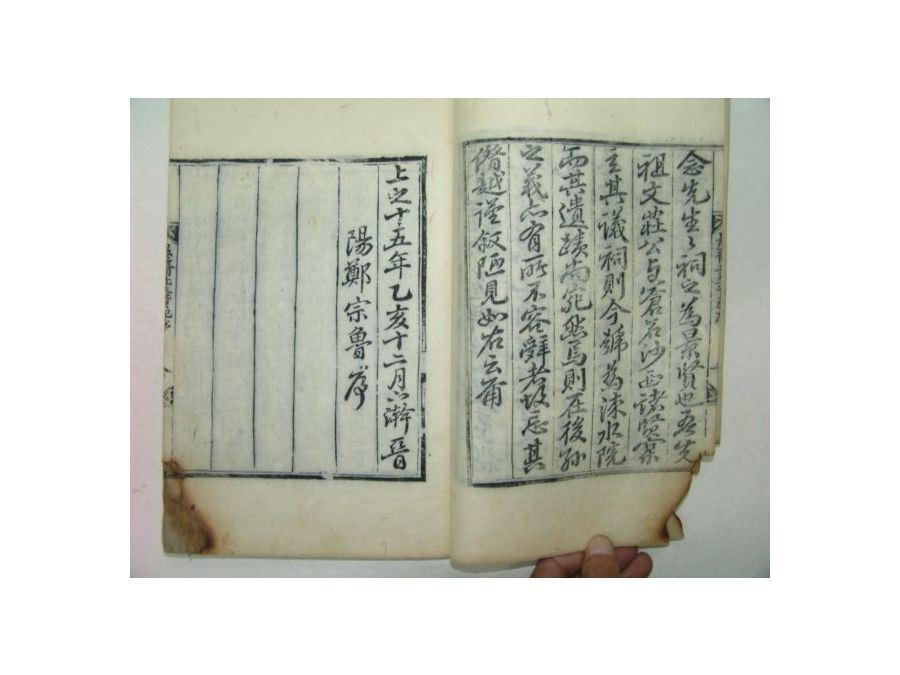 念先生之祠之為景賢也吾先
祖文莊公与蒼石沙西諸賢宲
主其議祠則今號為涑水院
而其遺蹟尚宛然焉則在後孫
之義亦有所不容辭者故忘其
僭越謹叙陋見如右云甭
上之十五年乙亥十二月下澣晉
陽鄭宗魯序